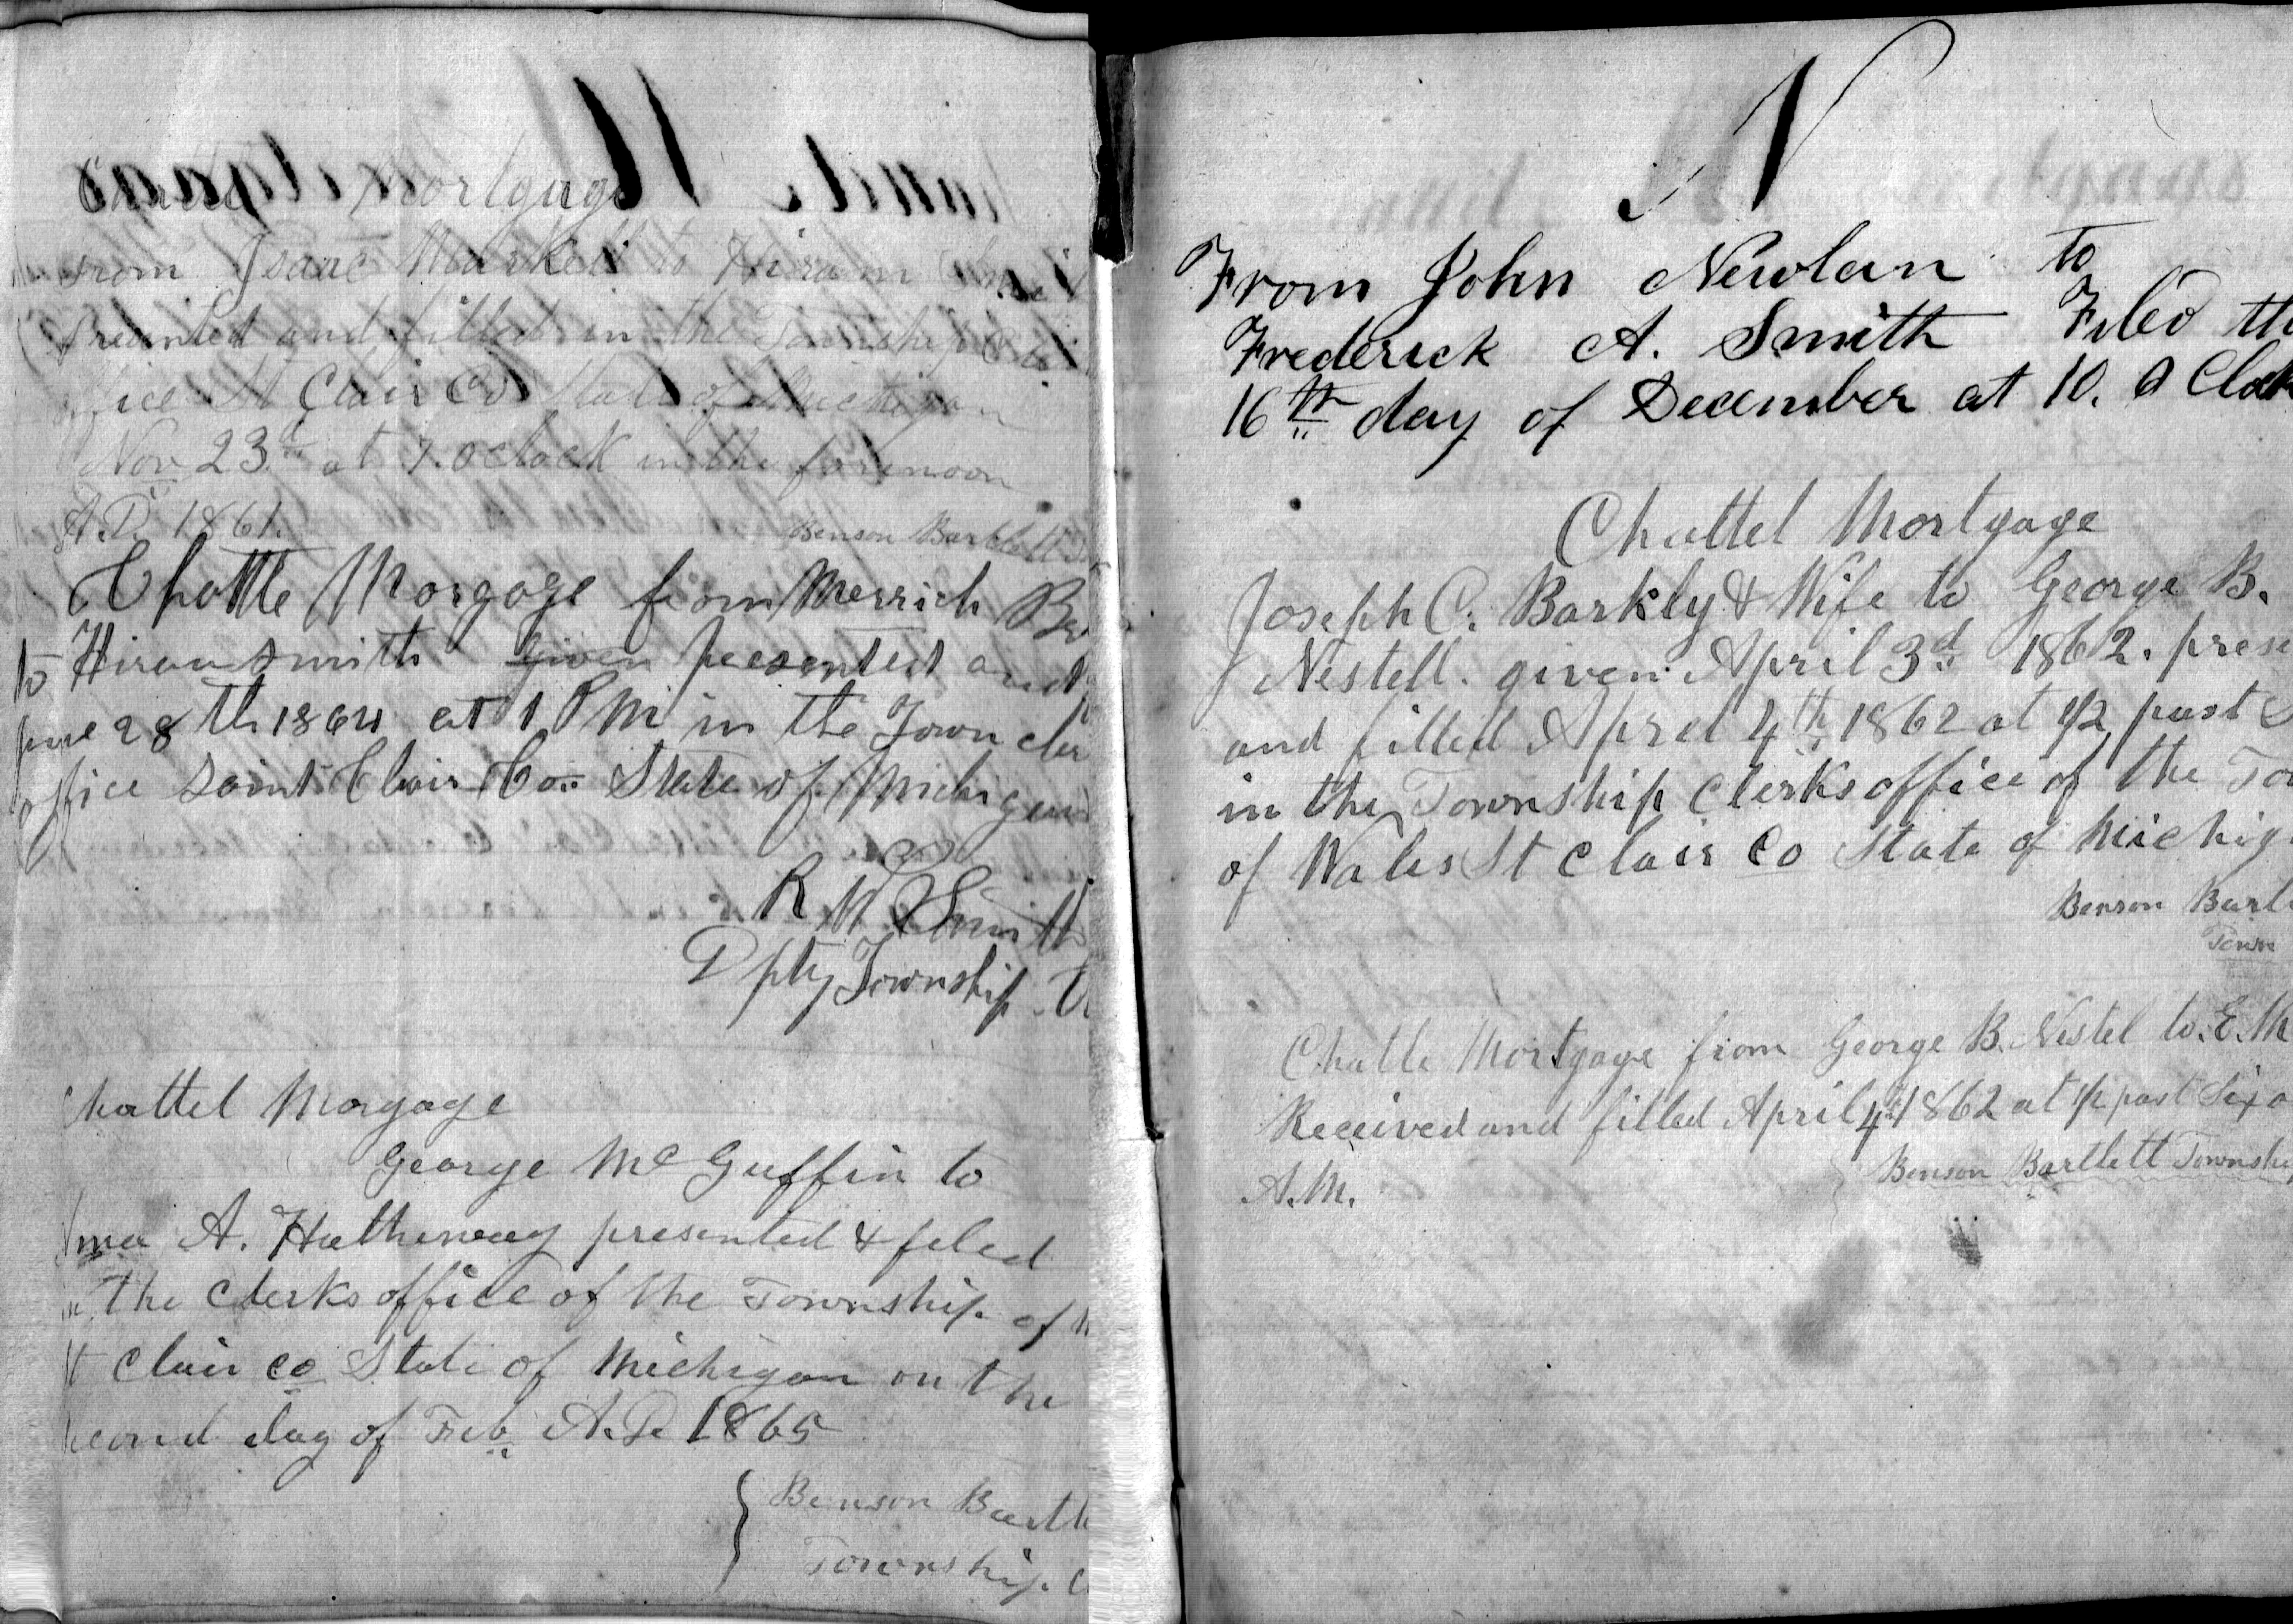 Mortgage
From Isaac Markell to Hiram
Presented and filled in the Township
office St Clair Co State of Michigan
Nov 23d at 7. oclock in the forenoon
A.D. 1861.
Benson Bartlett
Chattle Morgage from Merrich
to Hiram Smith given presented and
June 28th 1864 at 1 PM in the Town cler
office Saint Clair Co. State of Michigan
R W Smith
Dpty Township
Chattel Morgage
George Mc Guffin to
A. Hatheway presented & filed
in the Clerks office of the Township of
St Clair Co State of Michigan on the
second day of Feb. A.D. 1865
Benson Bartl
Township C
N
From John Newlan to
Frederick A. Smith Filed the
16th day of December at 10. O Clock
Chattel Mortgage
Joseph C. Barkly & Wife to George B.
Nestell. given April 3d 1862. prese
and filled April 4th 1862 at 1/2 past
in the Township Clerks office of the To
of Wales St Clair Co State of Michig
Benson Bartl
Town
Chatle Mortgage from George B. Nestel to. E. M
Received and filled April 4th 1862 at 1/2 past Six o
A.M.
Benson Bartlett Townshi